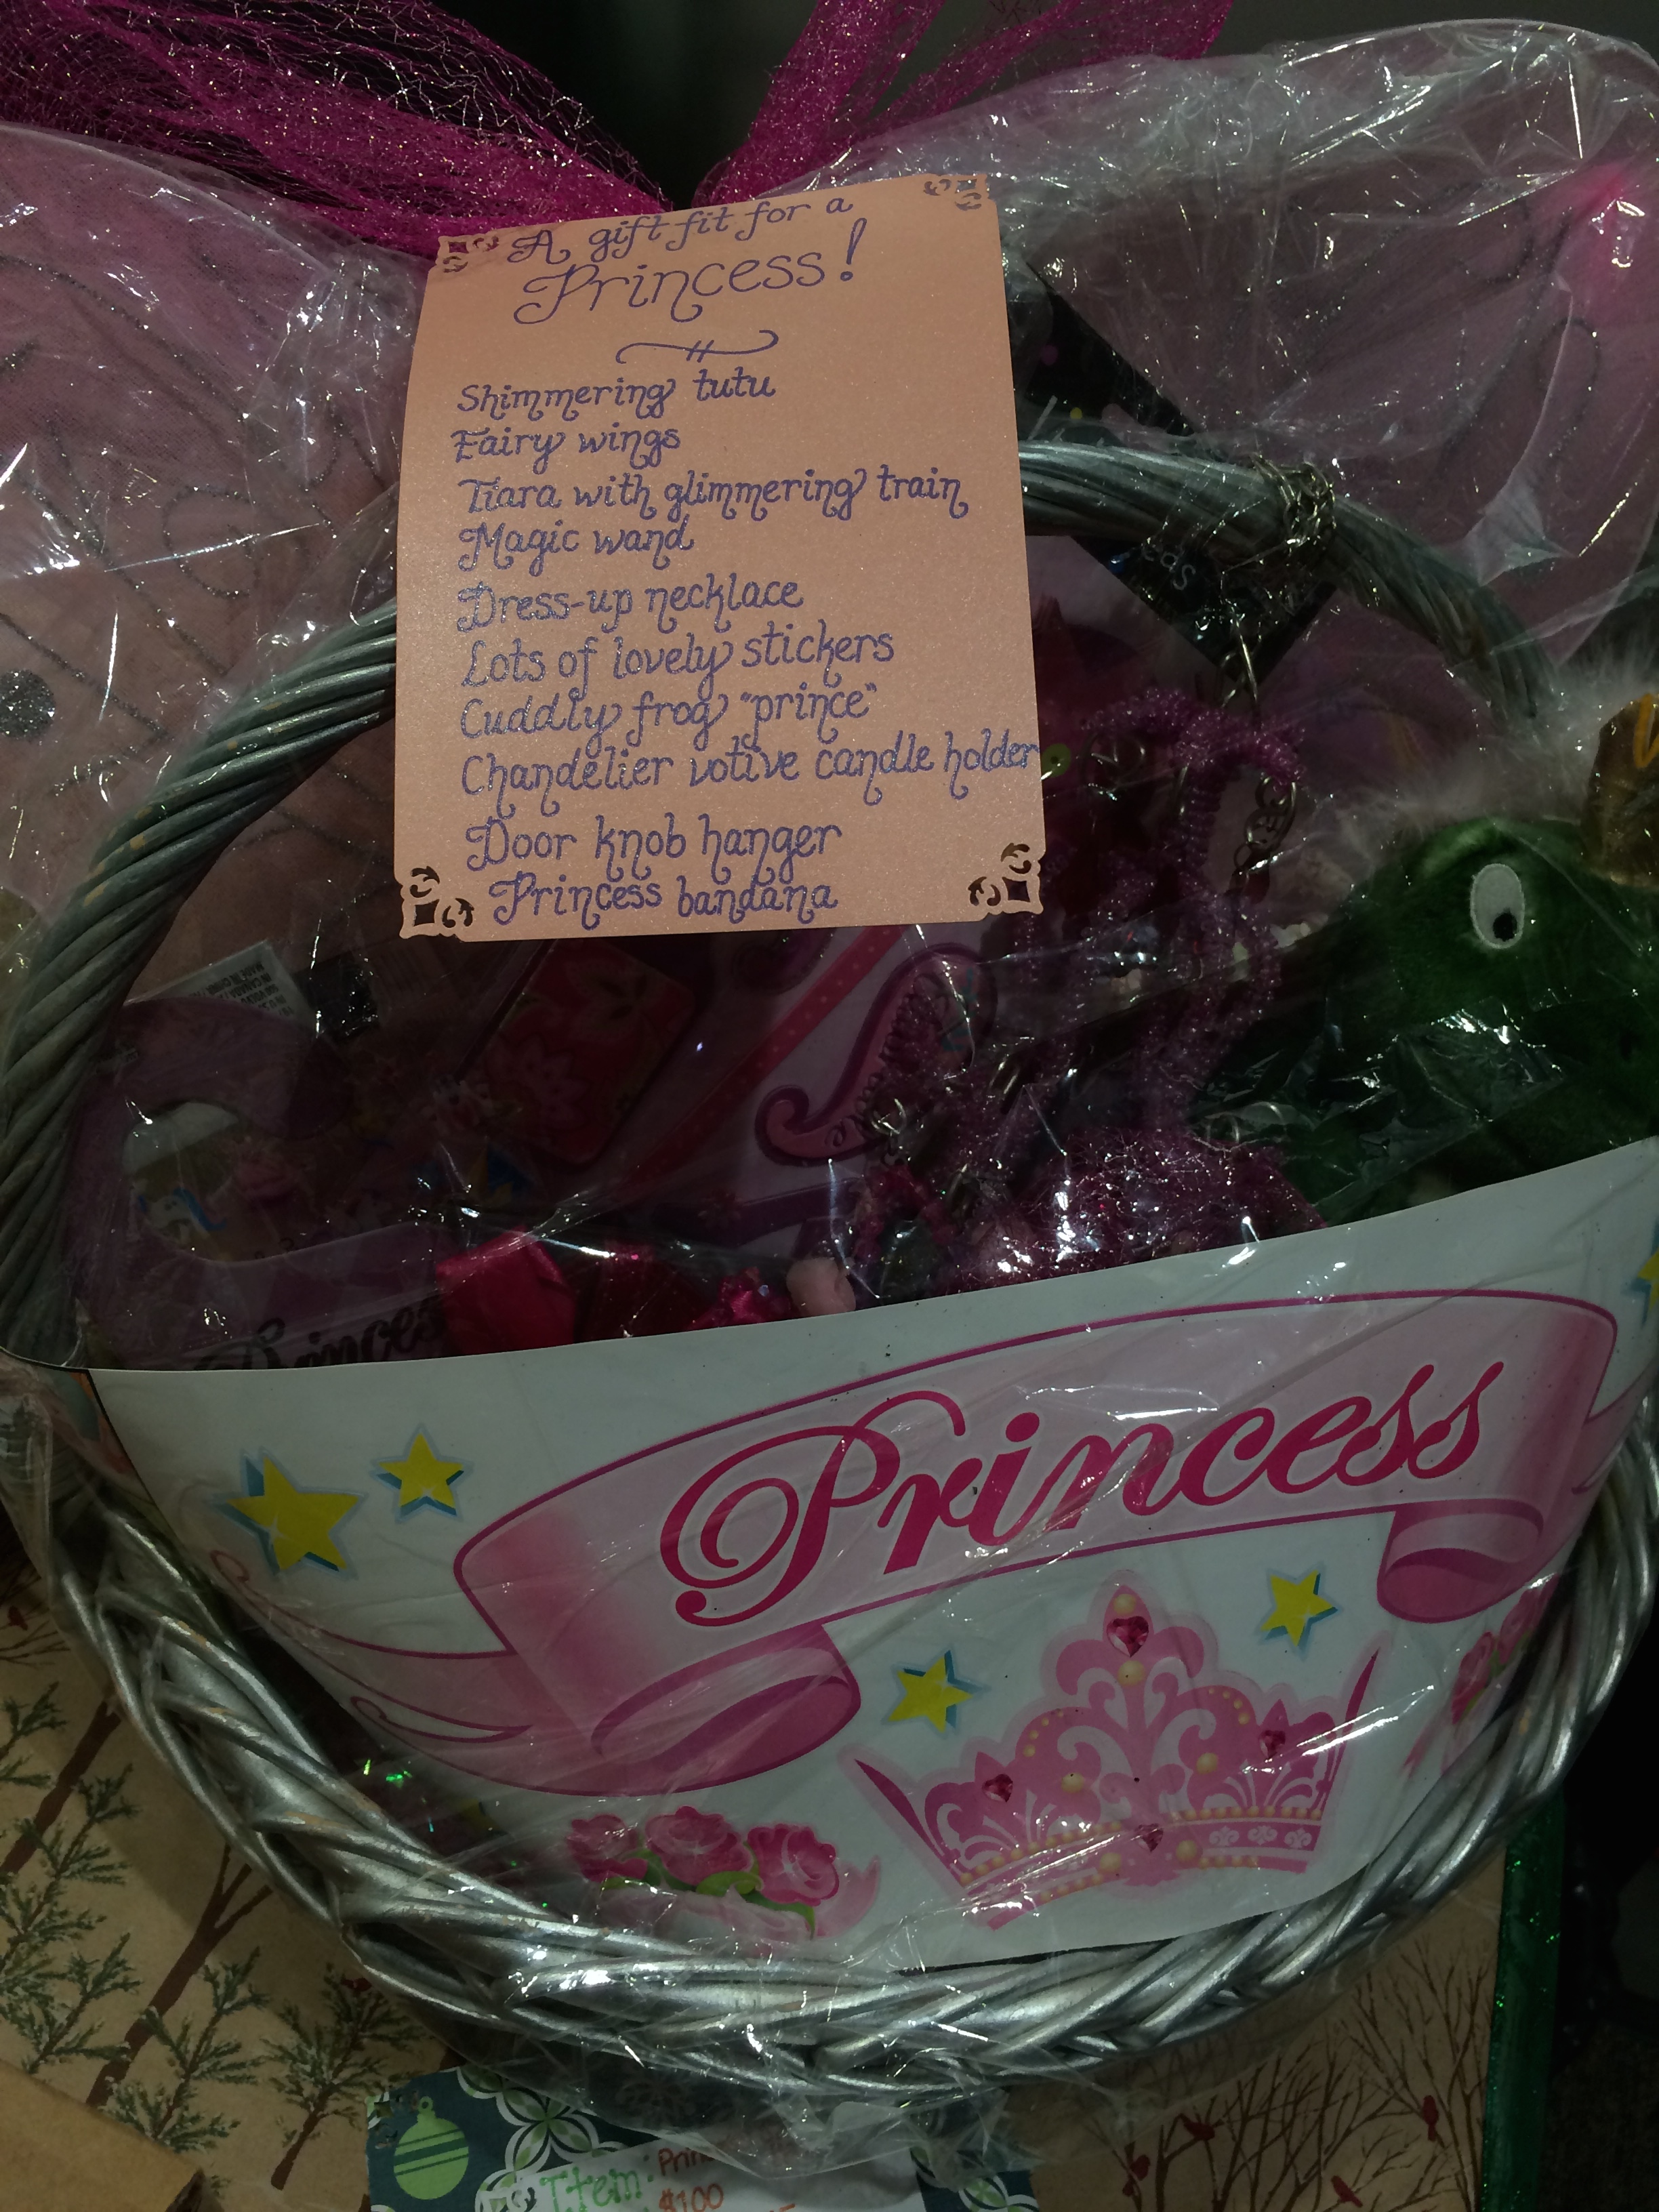 A gift fit for a
Princess!
Shimmering tutu
Fairy wings
Tiara with glimmering train
Magic wand
Dress-up necklace
Lots of lovely stickers
Cuddly frog "prince"
Chandelier votive candle holder
Door knob hanger
Princess bandana
MADE IN CHINA
Princess
Princess
Item:
$100